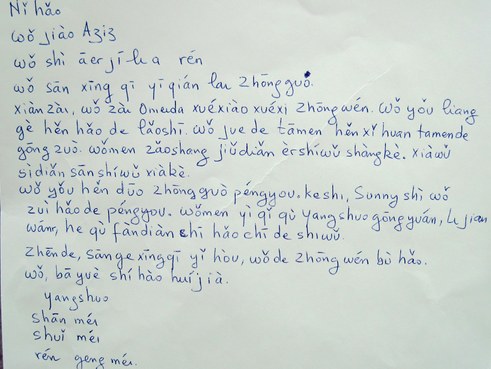 Nǐ hǎo
wǒ jiào Aziz
wǒ shì āerjīlia rén
wǒ sān xīng qī yī qián lai zhōngguó.
xiàn zài, wǒ zài Omeida xuéxiào xuéxi zhōngwén. wǒ yǒu liang
gè hěn hǎo de lǎoshī. wǒ jue de tāmen hěn xǐ huan tamende
gōng zuò. wǒmen zǎoshang jiǔdiǎn èrshíwǔ shàngkè. xiàwǔ
sìdiǎn sānshíwǔ xiàkè.
wǒ yǒu hěn duō zhōngguò péngyou. keshi, Sunny shì wǒ
zui hǎo de péngyou. wǒmen yì qǐ qù yangshuo gōngyuán, Li jian
wáng, he qù fàndiàn chī hǎo chī de shiwǔ.
zhēnde, sāngexīngqī yǐ hòu, wǒde zhōngwén bù hǎo.
wǒ, bāyuè shí hào huíjià.
yangshuo
shān méi
shuǐ méi
rén geng méi.